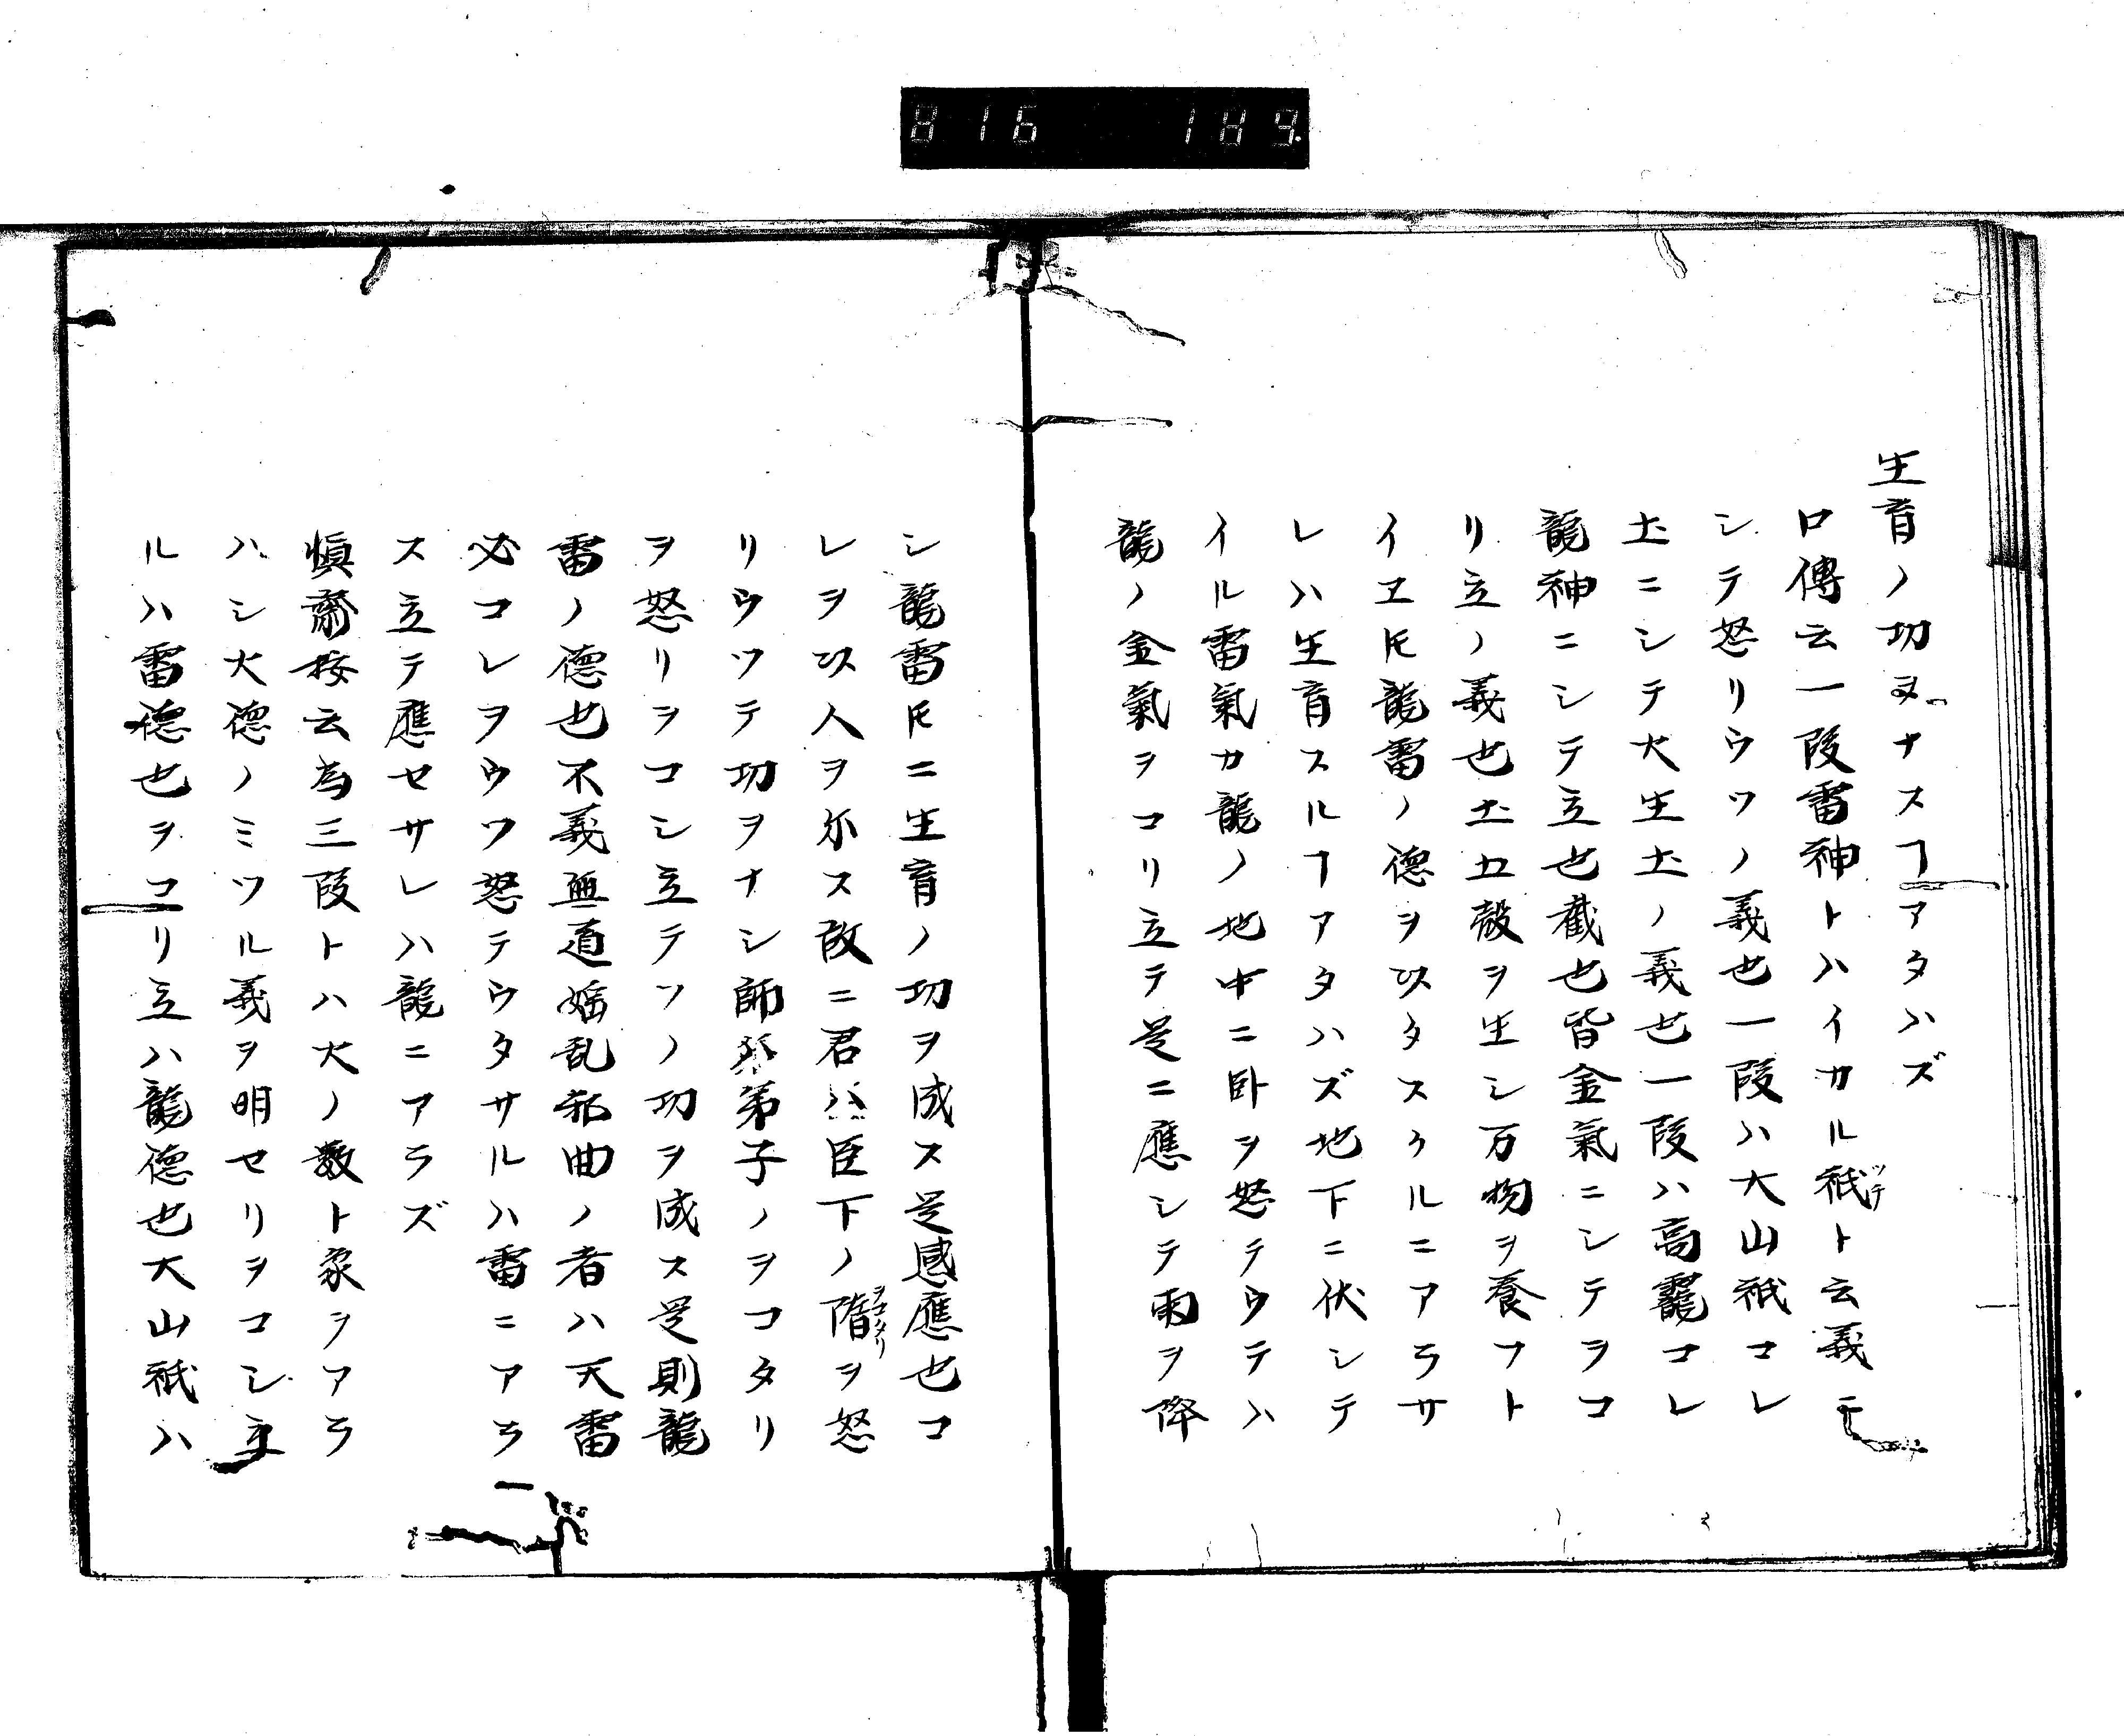 816 189
生育ノ功ヲナスヿアタハズ
口傳云一段雷神トハイカル祇ツテト云義
シテ怒リウツノ義也一段ハ大山祇コレ
土ニシテ大生土ノ義也一段ハ高龗コレ
龍神ニシテ立也截也皆金氣ニシテヲコ
リ立ノ義也土五穀ヲ生シ万物ヲ養フト
イヱ𪜈龍雷ノ德ヲ以タスクルニアラサ
レハ生育スルヿアタハズ地下ニ伏シテ
イル雷氣カ龍ノ地中ニ卧ヲ怒テウテハ
龍ノ金氣ヲコリ立テ是ニ應シテ雨ヲ降
シ龍雷𪜈ニ生育ノ功ヲ成ス是感應也コ
レヲ以人ヲ尓ス故ニ君臣下ノ惰ヲコタリヲ怒
リウツテ功ヲナシ師弟子ノヲコタリ
ヲ怒リヲコシ立テソノ功ヲ成ス是則龍
雷ノ德也不義無道婬乱邪曲ノ者ハ天雷
必コレヲウツ怒テウタサルハ雷ニアラ
ス立テ應セサレハ龍ニアラズ
愼齋按云為三段トハ大ノ数ト象ヲアラ
ハシ大德ノミツル義ヲ明セリヲコシ立
ルハ雷德也ヲコリ立ハ龍德也大山祇ハ